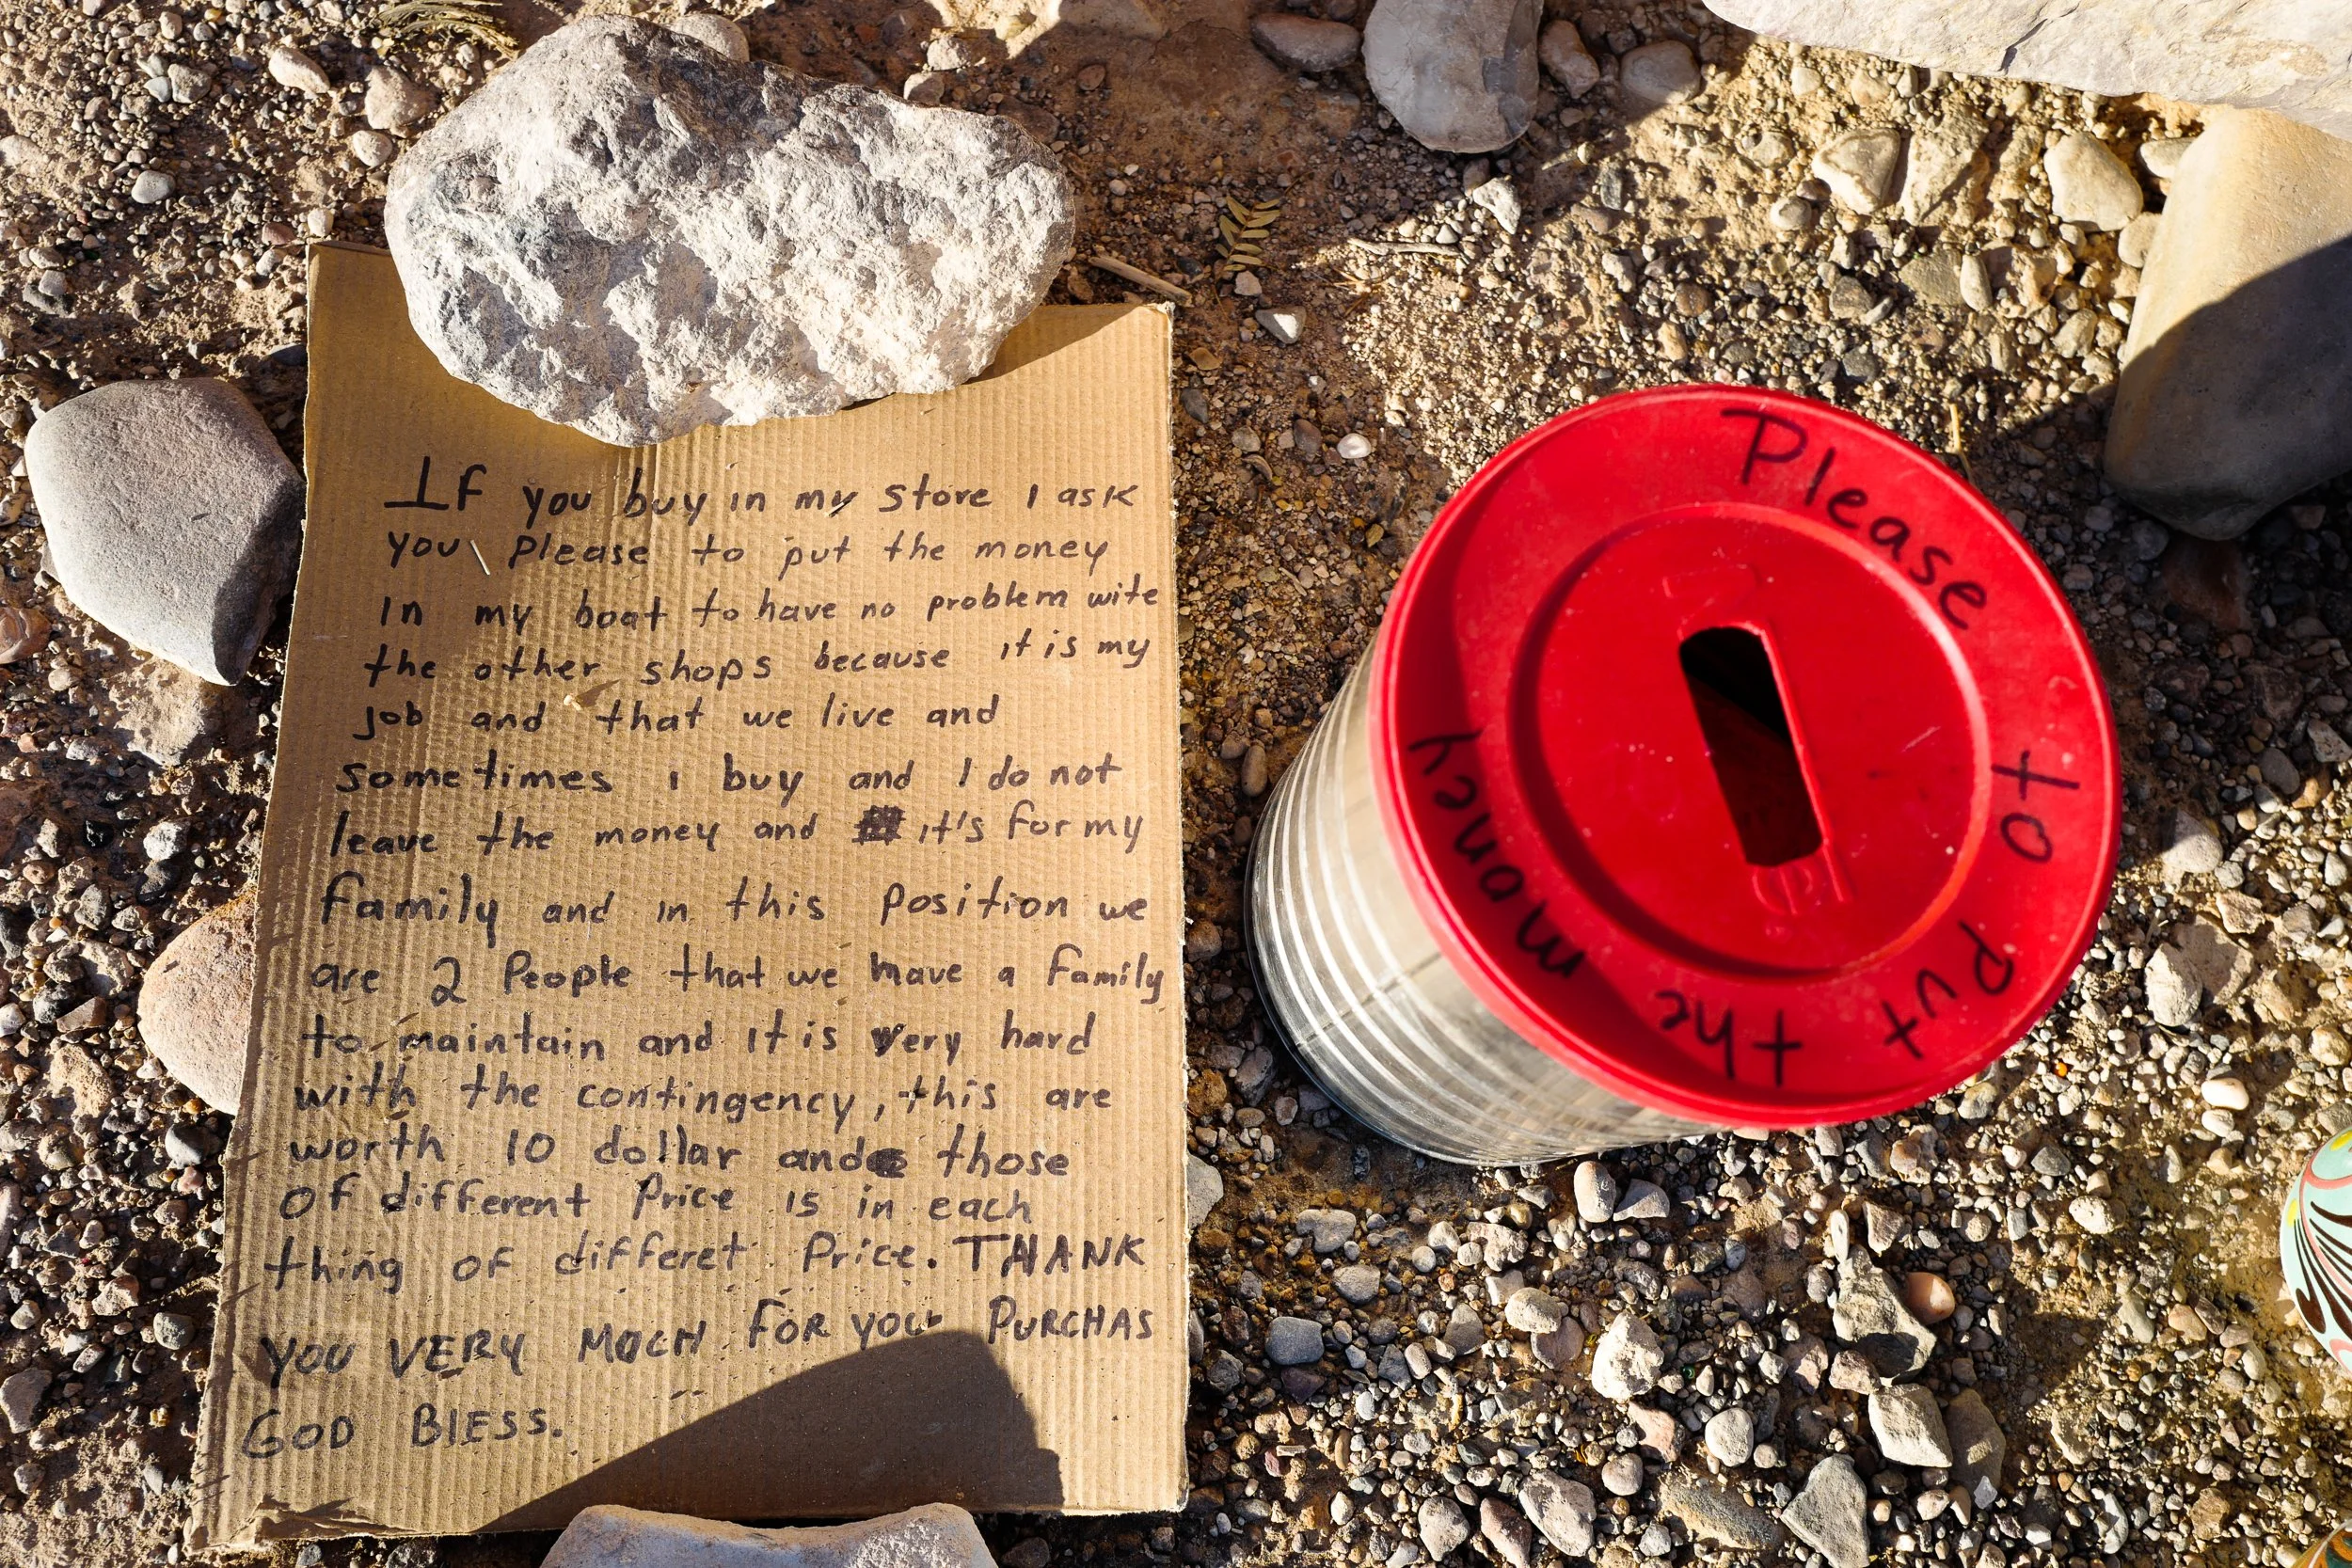 If you buy in my store I ask
you please to put the money
In my boat to have no problem wite
the other shops because it is my
job and that we live and
sometimes I buy and I do not
leave the money and it's for my
family and in this position we
are 2 People that we have a family
to maintain and it is very hard
with the contingency, this are
worth 10 dollar and those
of different Price is in each
thing of differet Price. THANK
YOU VERY MUCH FOR YOUR PURCHAS
GOD BlESS.
Please to put the money